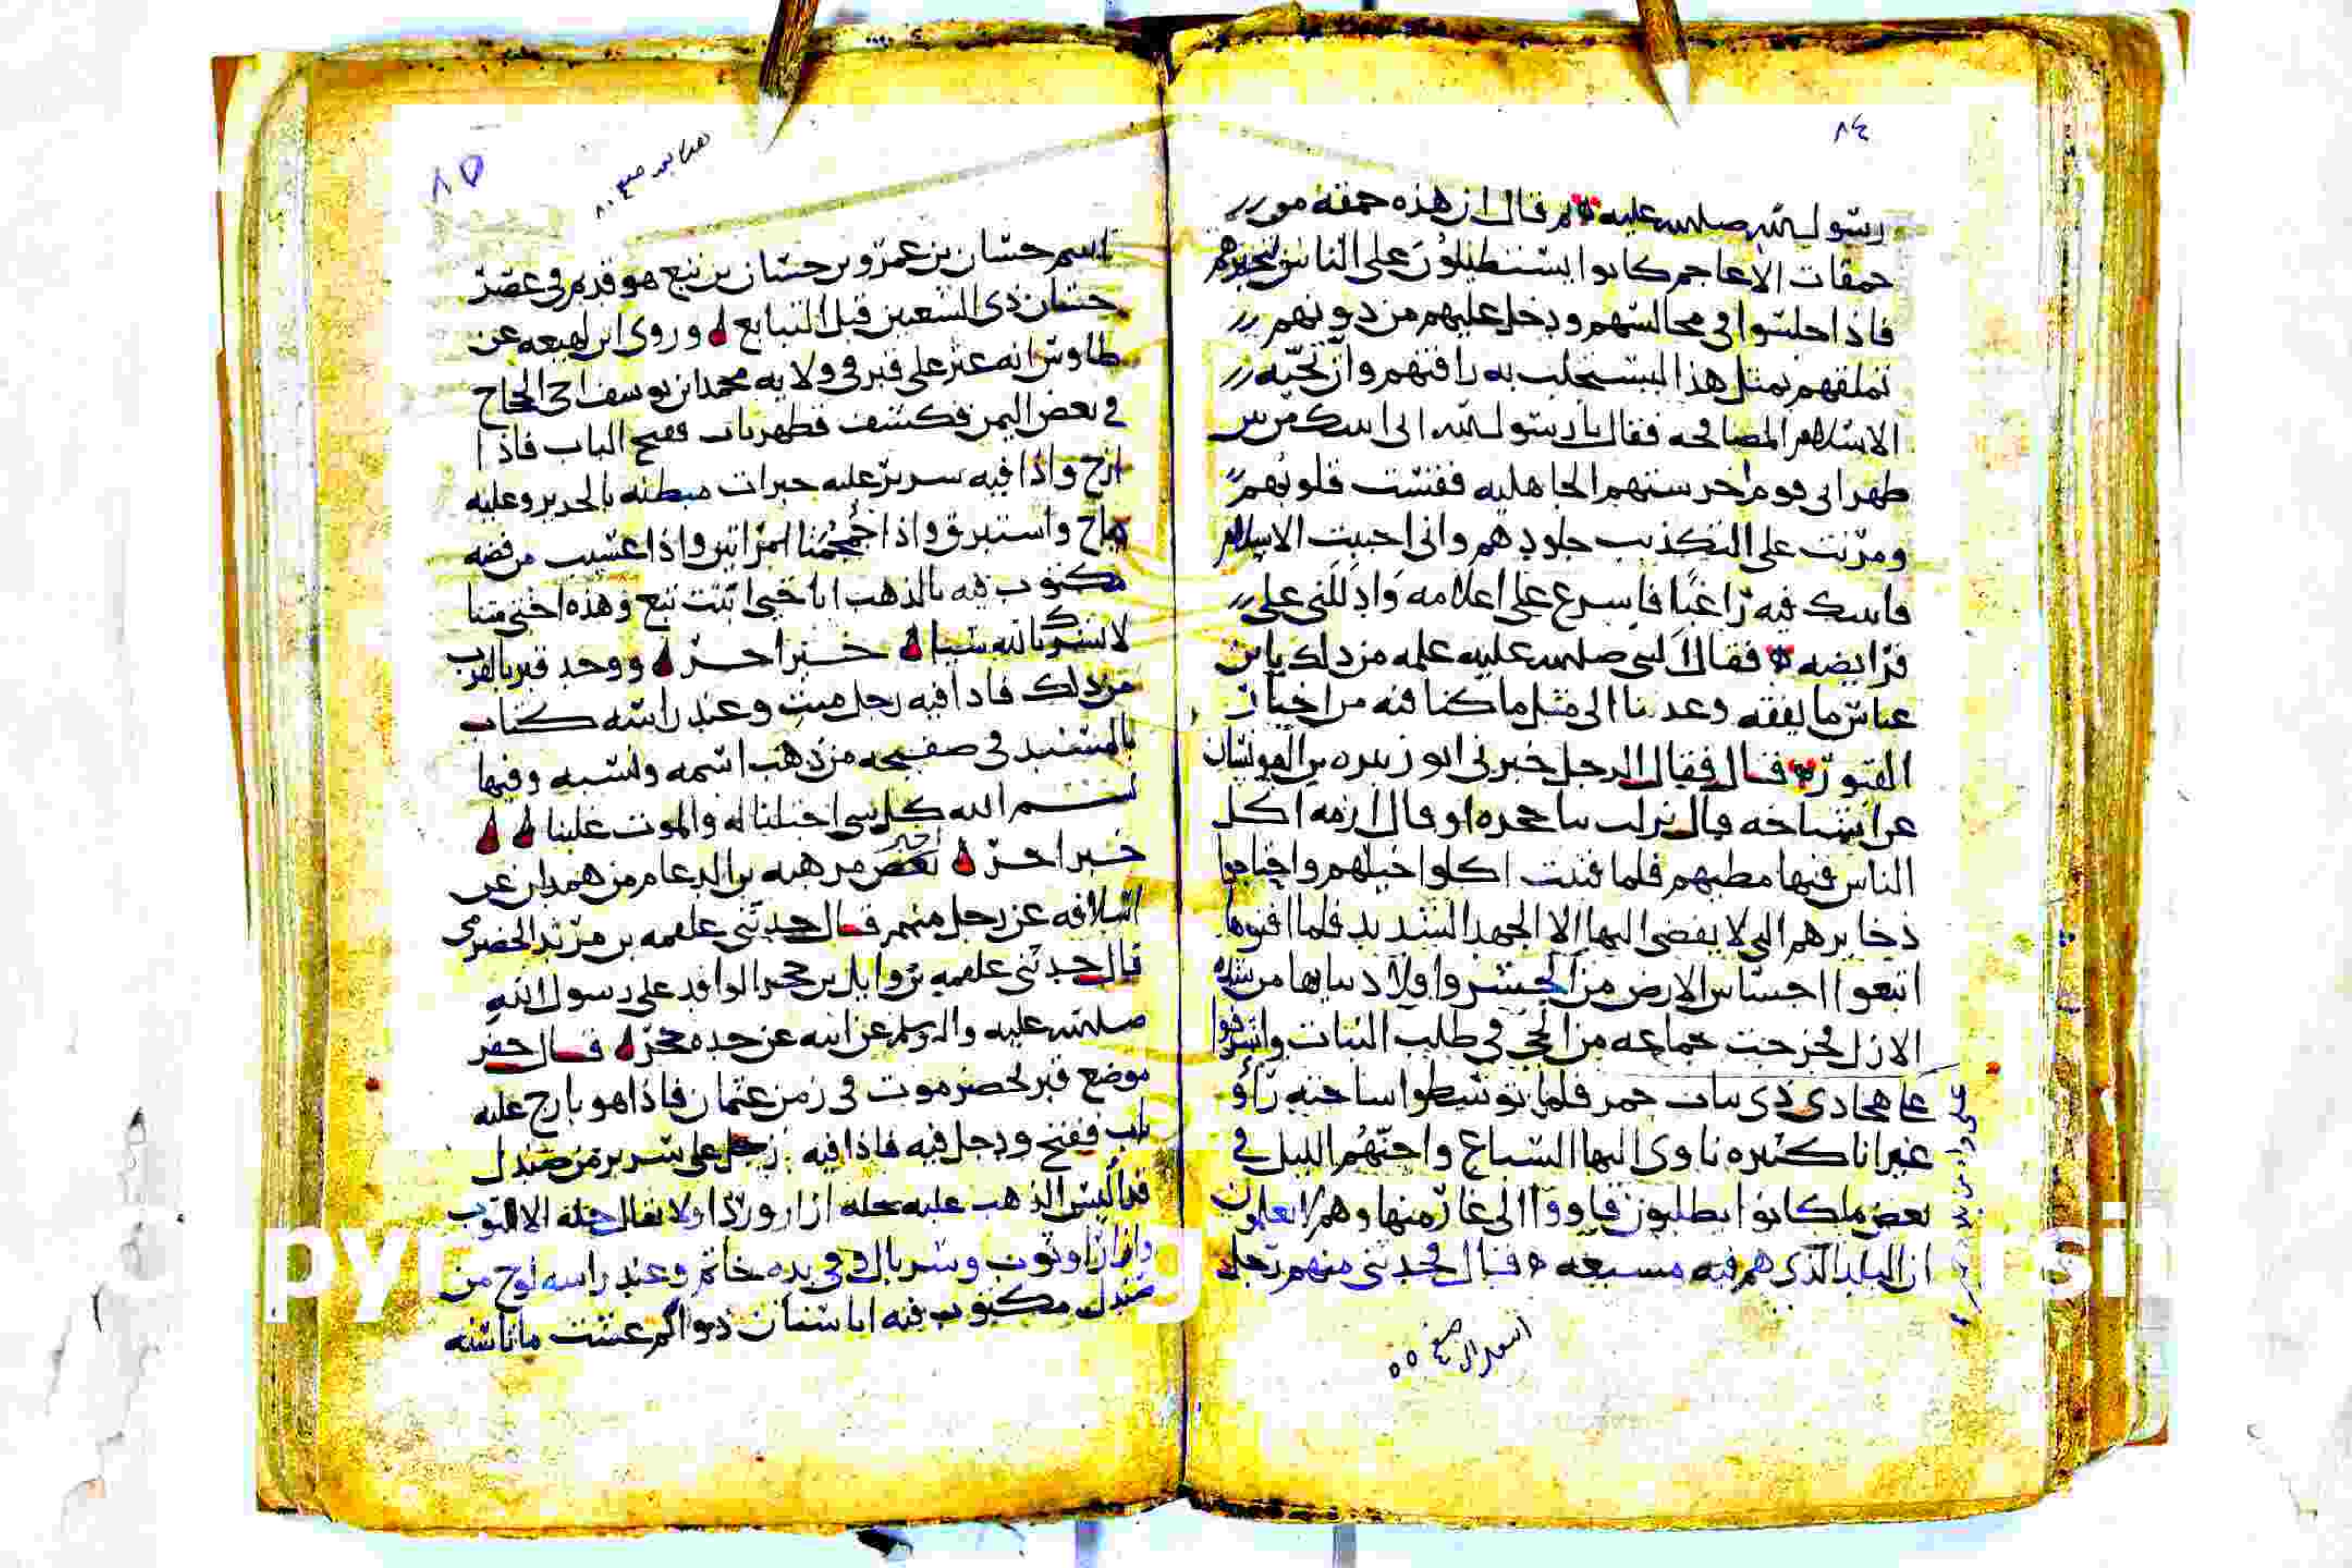 ٨٤
رسول الله صلى الله عليه ثم قال ان هذه حمقه من
حمقات الاعاجم كانوا يستطيلون على الناس
فاذا جلسوا في مجالسهم ودخل عليهم من دونهم
تملقهم بمثل هذا ليستجلب به رافتهم وان تحيه
الاسلام المصافحه فقال يا رسول الله انى اتيتك من
ظهرانى قوم اخرستهم الجاهليه ففتنت قلوبهم
ومرنت على التكذيب جلودهم وانى احببت الاسلام
فاتيتك فيه راغبا فاسرع على اعلامه وادللنى على
فرايضه فقال النبى صلى الله عليه علمه من ذلك يابن
عباس ما يفقه وعد بنا الى مثل ما كنا فيه من اخبار
القبور قال فقال الرجل خبرنى ابو زبيده بن
عن اشياخه قال نزلت بنا جحره او قال ازمه اكل
الناس فيها مطيهم فلما فنيت اكلوا خيلهم واجتاحوا
ذخايرهم التى لا يفضى اليها الا الجهد الشديد فلما افنوها
اتبعوا احساس الارض من الحشر واولاد بناتها من
الازل فخرجت جماعه من الحى في طلب النبات
ذى نبات حمر فلما توسطوا ساحته راوا
غيرانا كثيره تاوى اليها السباع واجنهم الليل في
بعض ما كانوا يطلبون فاووا الى غار منها وهم لا يعلمون
ان البلد الذى هم فيه مسبعه قال فحدثنى منهم رجل
٨٥
اسم حسان بن عمرو بن حسان بن تبع هو قديم في عصر
حسان ذى الشعبين قبل التبابع وروى ابن لهيعه عن
طاوس انه عثر على قبر في ولايه محمد ابن يوسف اخى الحجاج
في بعض اليمن فكشف فظهر باب ففتح الباب فاذا
ازج واذا فيه سرير عليه حبرات مبطنه بالحرير وعليه
واستبرق واذا جمجمتا امراتين واذا عسيب من فضه
مكتوب فيه بالذهب انا حبى ابنت تبع وهذه اختى متنا
لا نشرك بالله شيا خبر اخر ووجد قبر بالقرب
من ذلك فاذا فيه رجل ميت وعند راسه كتاب
بالمسند في صفيحه من ذهب اسمه ونسبه وفيها
بسم الله كل شى احتلنا له والموت علينا
خبر اخر بعض من هبه بن الدعام من همدان عن
اسلافه عن رجل منهم قال حدثنى علقمه بن مرثد الحضرمى
قال حدثنى علقمه بن وايل بن حجر الوافد على رسول الله
صلى الله عليه واله وسلم عن ابيه عن جده حجر قال حفر
موضع قبر لحضرموت في زمن عثمان فاذا هو بازج عليه
باب ففتح ودخل فيه فاذا فيه رجل على سرير من صندل
قد البس الذهب عليه حله ازار وردا ولا يقال حله الا الثوب
وازار او ثوب وسربال وفي يده خاتم وعند راسه لوح من
صندل مكتوب فيه انا شمان ذو الم عشت مانا سنه